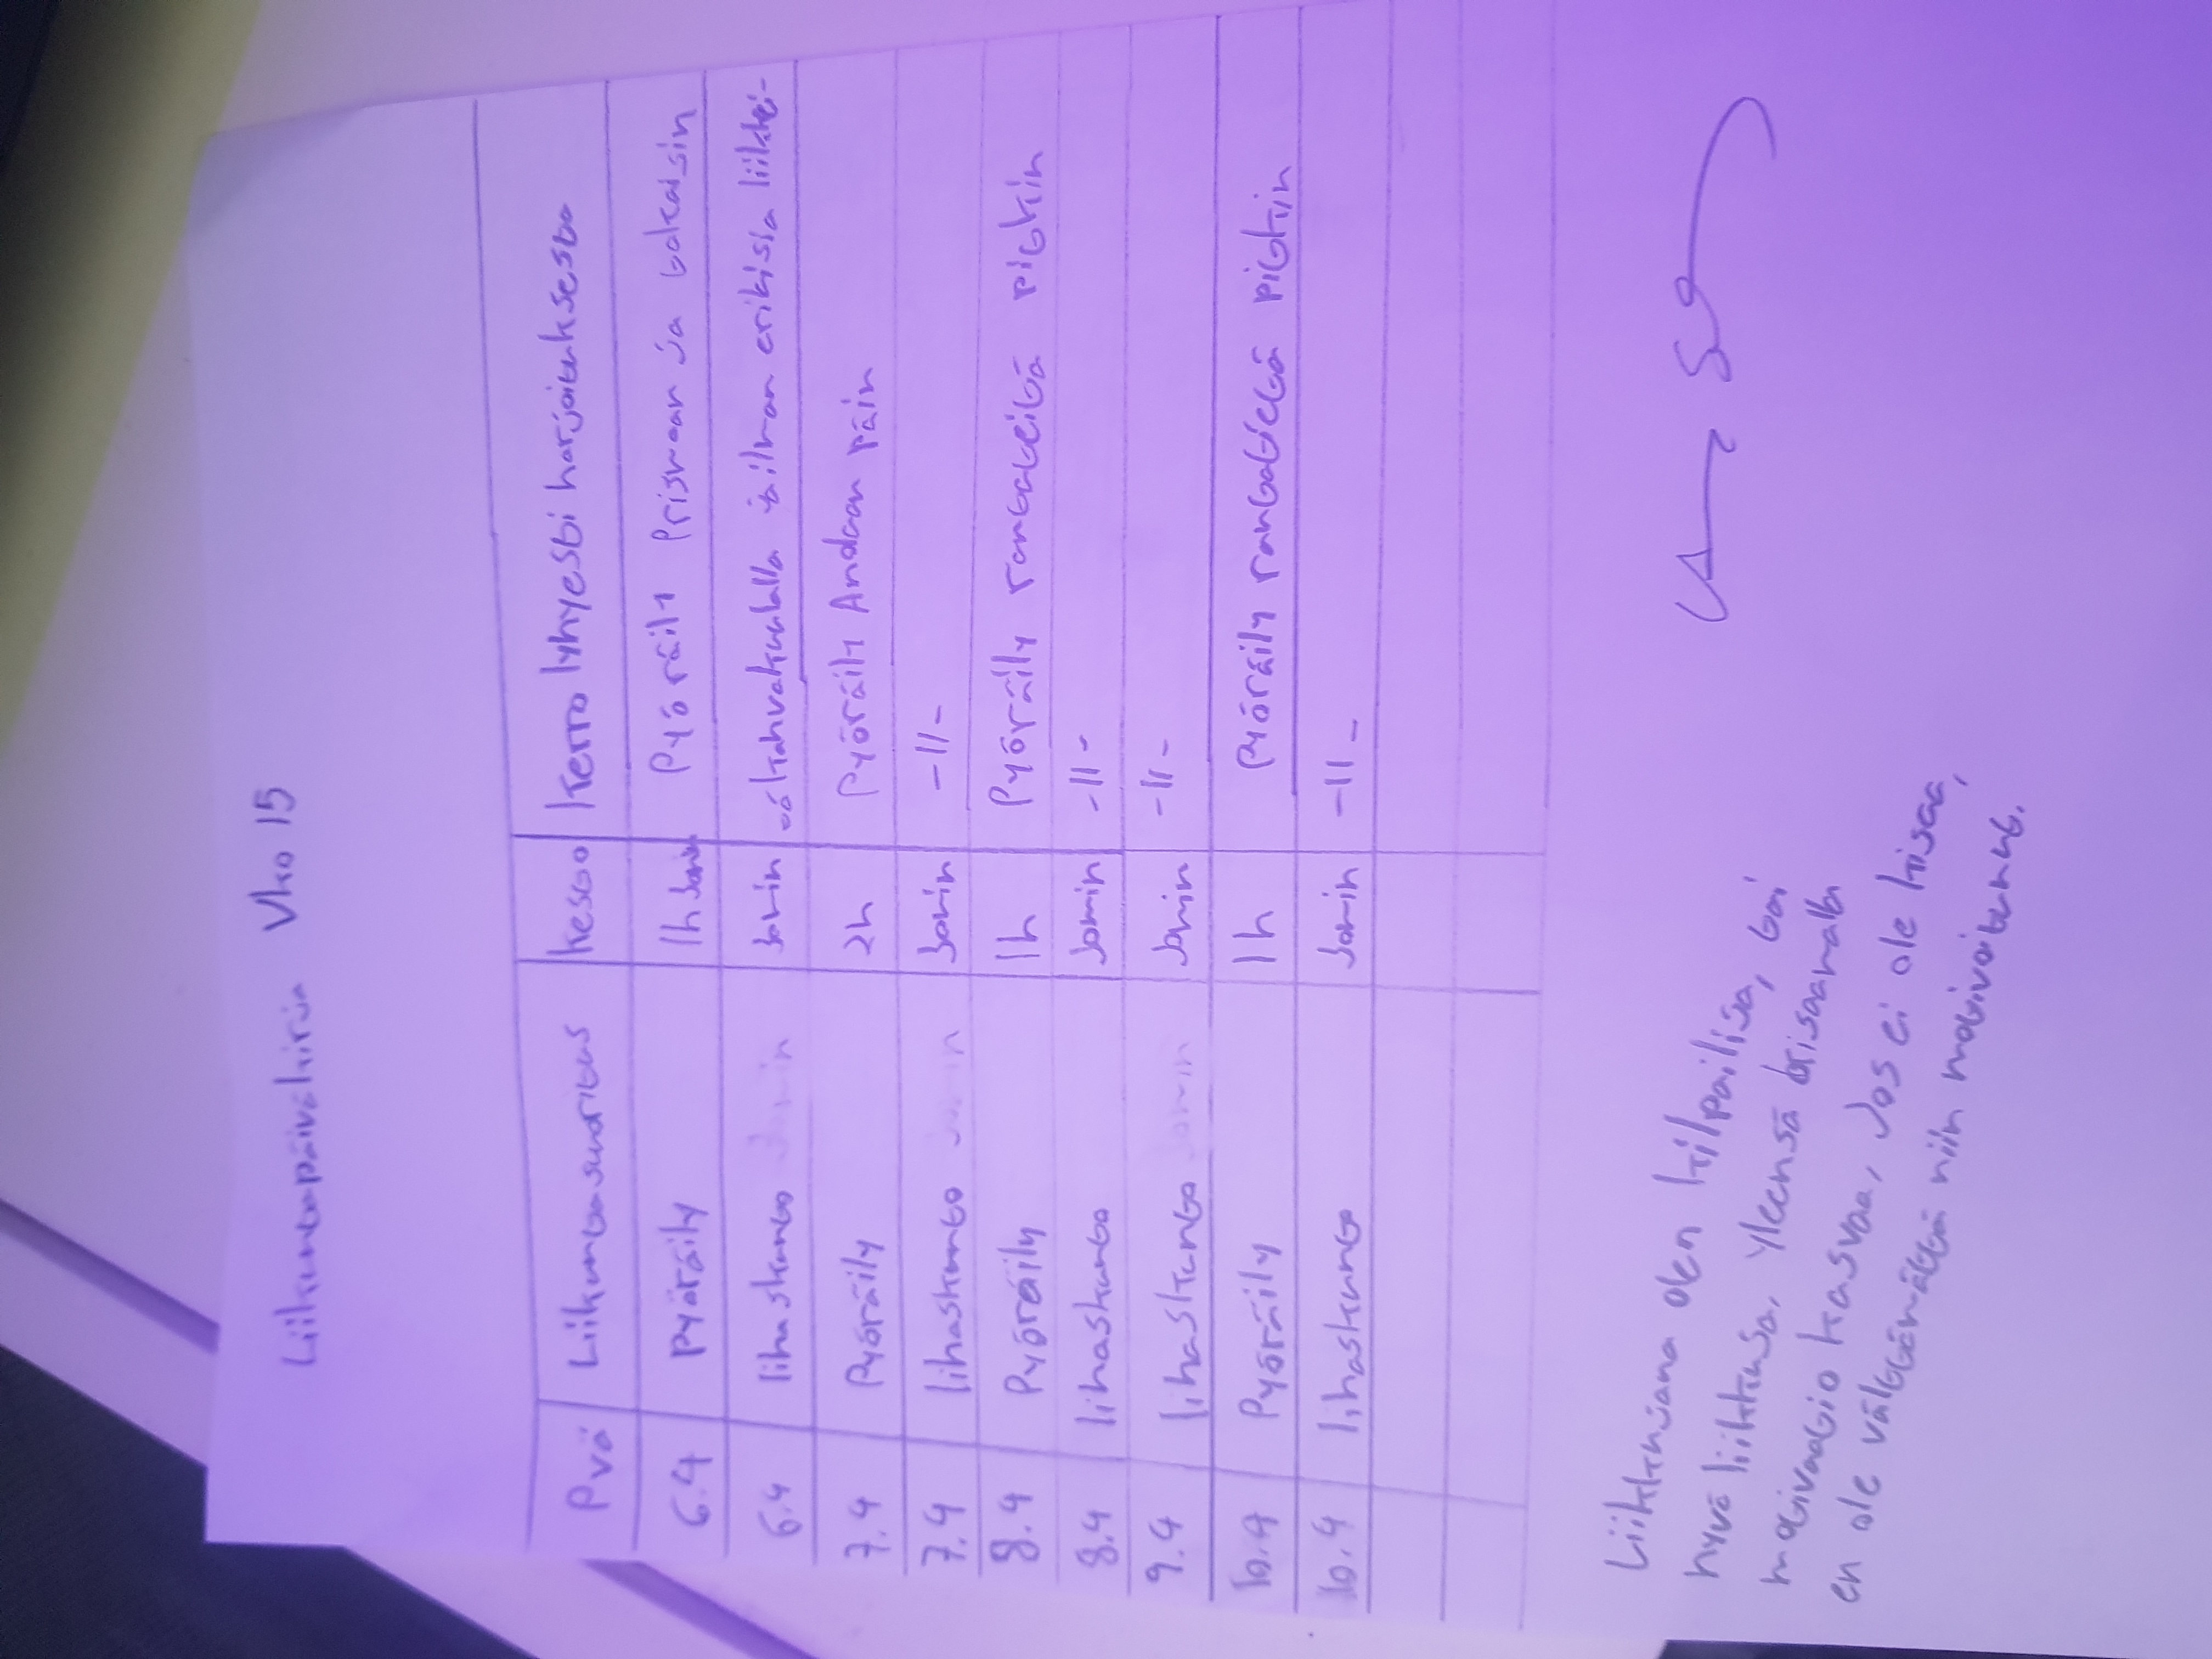 Liikuntapäiväkirja Vko 15
Pvä Liikuntasuoritus Kesto Kerro lyhyesti harjoituksesta
6.4 Pyöräily 1h 30min Pyöräily Prismaan ja takaisin
6.4 lihaskunto 30min kahvakuulalla ilman erikisia liikkei-
7.4 Pyöräily 2h Pyöräily Andaan päin
7.4 lihaskunto 30min -11-
8.4 Pyöräily 1h Pyöräily rantateitä pitkin
8.4 lihaskunto 30min -11-
9.4 lihaskunto 30min -11-
10.4 Pyöräily 1h Pyöräily rantatietä pitkin
10.4 lihaskunto 30min -11-
Liikkujana olen kilpailija, tai
hyvä liikkuja, yleensä kisaamalla
motivaatio kasvaa, Jos ei ole kisaa,
en ole välttämättä niin motivoitunu.